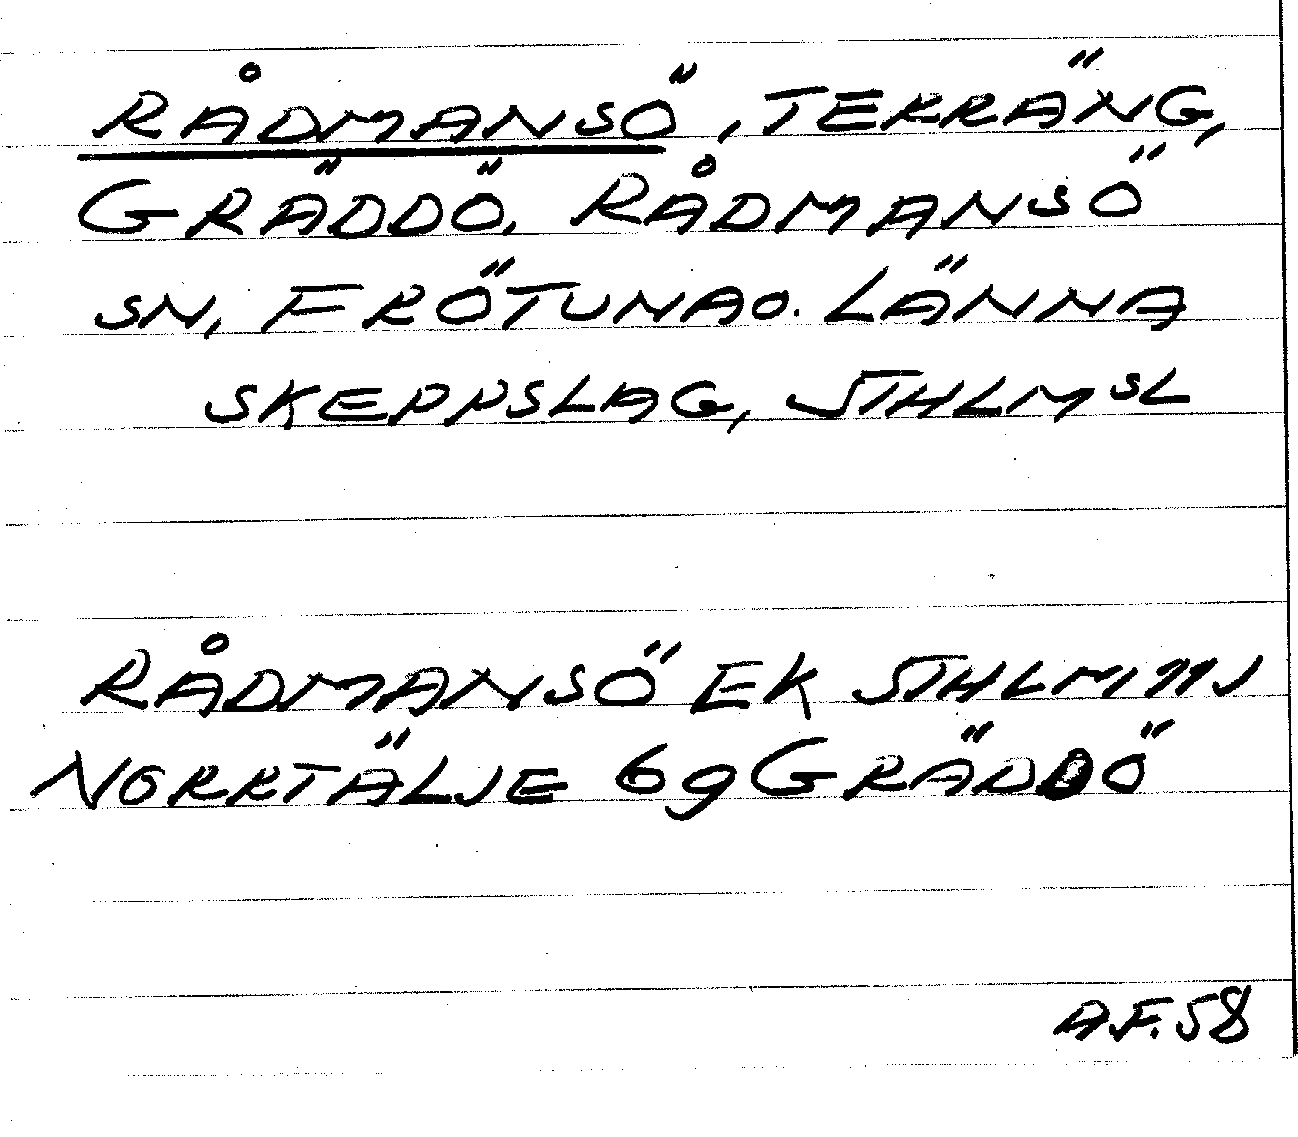 RÅDMANSÖ, TERRÄNG,
GRÄDDÖ, RÅDMANSÖ
SN, FRÖTUNA O. LÄNNA
SKEPPSLAG, STHLMSL
RÅDMANSÖ EK STHLM 11 NJ
NORRTÄLJE 6g GRÄDDÖ
A.F. 58